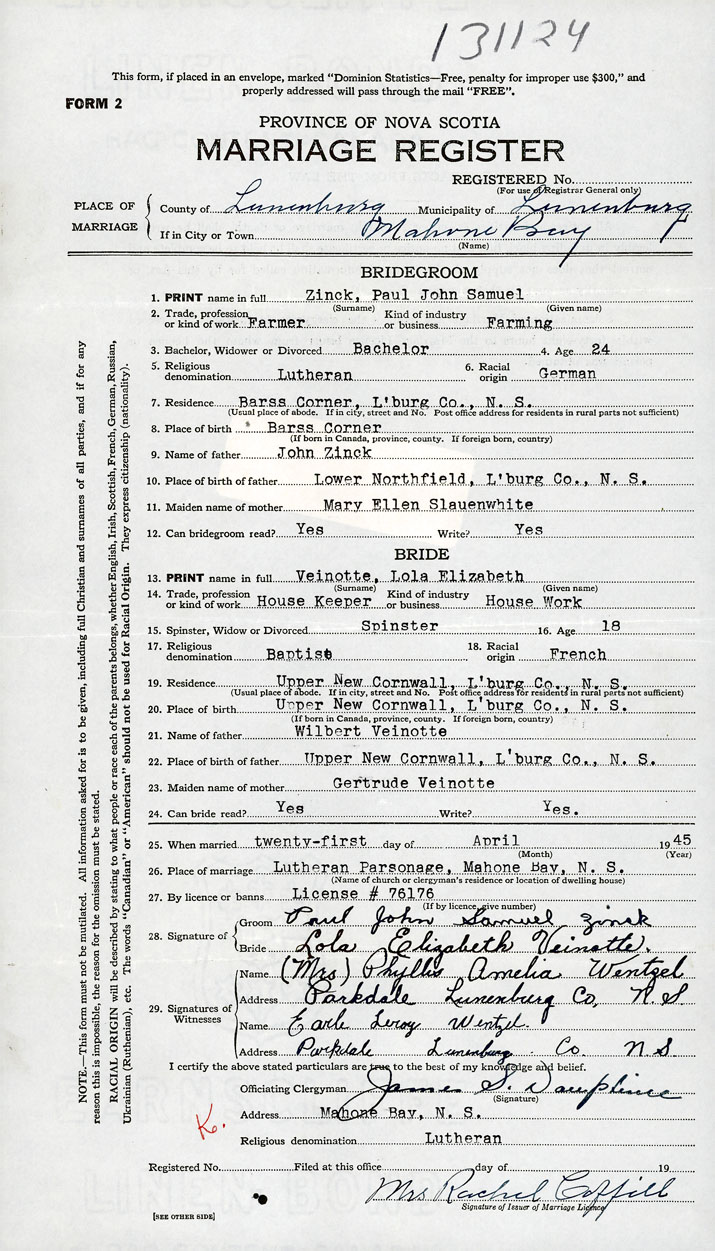 131124
This form, if placed in an envelope, marked "Dominion Statistics—Free, penalty for improper use $300," and
properly addressed will pass through the mail "FREE".
FORM 2
PROVINCE OF NOVA SCOTIA
MARRIAGE REGISTER
REGISTERED No.
(For use of Registrar General only)
PLACE OF MARRIAGE
County of Lunenburg Municipality of Lunenburg
If in City or Town Mahone Bay
(Name)
BRIDEGROOM
1. PRINT name in full Zinck, Paul John Samuel
(Surname) (Given name)
2. Trade, profession or kind of work Farmer Kind of industry or business Farming
3. Bachelor, Widower or Divorced Bachelor 4. Age 24
5. Religious denomination Lutheran 6. Racial origin German
7. Residence Barss Corner, L'burg Co., N. S.
(Usual place of abode. If in city, street and No. Post office address for residents in rural parts not sufficient)
8. Place of birth Barss Corner
(If born in Canada, province, county. If foreign born, country)
9. Name of father John Zinck
10. Place of birth of father Lower Northfield, L'burg Co., N. S.
11. Maiden name of mother Mary Ellen Slauenwhite
12. Can bridegroom read? Yes Write? Yes
BRIDE
13. PRINT name in full Veinotte, Lola Elizabeth
(Surname) (Given name)
14. Trade, profession or kind of work House Keeper Kind of industry or business House Work
15. Spinster, Widow or Divorced Spinster 16. Age 18
17. Religious denomination Baptist 18. Racial origin French
19. Residence Upper New Cornwall, L'burg Co., N. S.
(Usual place of abode. If in city, street and No. Post office address for residents in rural parts not sufficient)
20. Place of birth Upper New Cornwall, L'burg Co., N. S.
(If born in Canada, province, county. If foreign born, country)
21. Name of father Wilbert Veinotte
22. Place of birth of father Upper New Cornwall, L'burg Co., N. S.
23. Maiden name of mother Gertrude Veinotte
24. Can bride read? Yes Write? Yes.
25. When married twenty-first day of April 1945
(Month) (Year)
26. Place of marriage Lutheran Parsonage, Mahone Bay, N. S.
(Name of church or clergyman's residence or location of dwelling house)
27. By licence or banns License # 76176
(If by licence give number)
28. Signature of
Groom Paul John Samuel Zinck
Bride Lola Elizabeth Veinotte.
29. Signatures of Witnesses
Name (Mrs) Phyllis Amelia Wentzel
Address Parkdale Lunenburg Co, N S
Name Earle Leroy Wentzel.
Address Parkdale Lunenburg Co. N S
I certify the above stated particulars are true to the best of my knowledge and belief.
Officiating Clergyman James S. Dauphinee
(Signature)
Address Mahone Bay, N. S.
K.
Religious denomination Lutheran
Registered No. Filed at this office day of 19
Mrs Rachel Coffill
Signature of Issuer of Marriage Licence
[SEE OTHER SIDE]
NOTE.—This form must not be mutilated. All information asked for is to be given, including full Christian and surnames of all parties, and if for any
reason this is impossible, the reason for the omission must be stated.
RACIAL ORIGIN will be described by stating to what people or race each of the parents belongs, whether English, Irish, Scottish, French, German, Russian,
Ukrainian (Ruthenian), etc. The words "Canadian" or "American" should not be used for Racial Origin. They express citizenship (nationality).